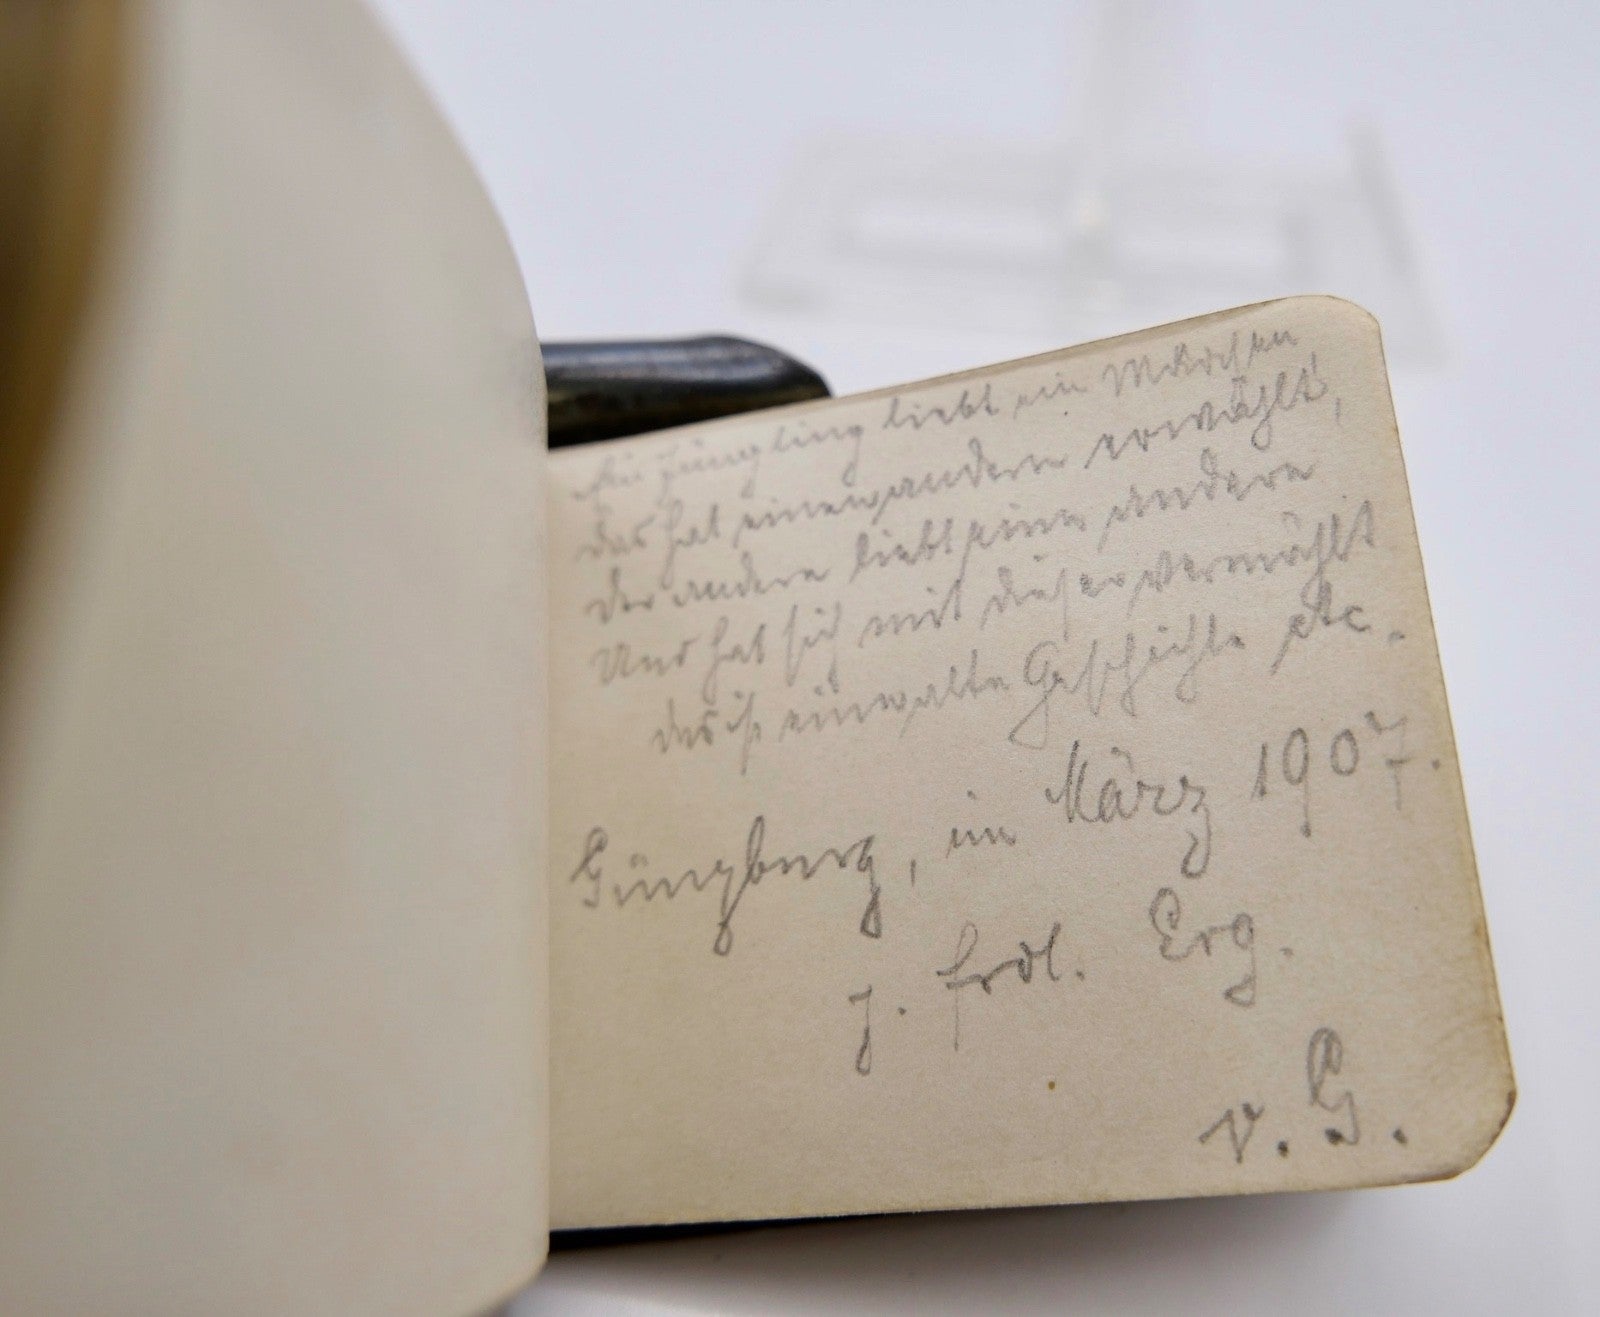 Ein Jüngling liebt ein Mädchen
das hat einen andern erwählt,
der andere liebt eine andere
Und hat sich mit dieser vermählt
das ist eine alte Geschichte etc.
Günzburg, im März 1907.
z. frdl. Erg.
v. G.